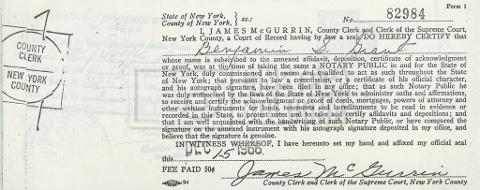 Form 1
State of New York,
County of New York, ss.
No. 82984
I, JAMES McGURRIN, County Clerk and Clerk of the Supreme Court,
New York County, a Court of Record having by law a seal, DO HEREBY CERTIFY that
Benjamin S. Grant
whose name is subscribed to the annexed affidavit, deposition, certificate of acknowledgment
or proof, was at the time of taking the same a NOTARY PUBLIC in and for the State of
New York, duly commissioned and sworn and qualified to act as such throughout the State
of New York; that pursuant to law a commission, or a certificate of his official character,
and his autograph signature, have been filed in my office; that as such Notary Public he
was duly authorized by the laws of the State of New York to administer oaths and affirmations,
to receive and certify the acknowledgment or proof of deeds, mortgages, powers of attorney
and other written instruments for lands, tenements and hereditaments to be read in evidence or
recorded in this State, to protest notes and to take and certify affidavits and depositions; and
that I am well acquainted with the handwriting of such Notary Public, or have compared the
signature on the annexed instrument with his autograph signature deposited in my office, and
believe that the signature is genuine.
IN WITNESS WHEREOF, I have hereunto set my hand and affixed my official seal
this DEC 15 1966,
FEE PAID 50¢
James McGurrin
County Clerk and Clerk of the Supreme Court, New York County
94
COUNTY
CLERK
NEW YORK
COUNTY